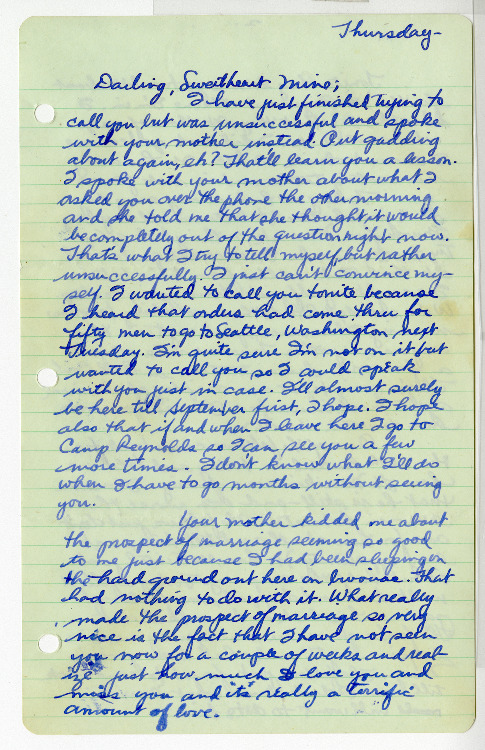 Thursday-
Darling, Sweetheart Mine;
I have just finished trying to
call you but was unsuccessful and spoke
with your mother instead. Out gadding
about again, eh? That'll learn you a lesson.
I spoke with your mother about what I
asked you over the phone the other morning
and she told me that she thought it would
be completely out of the question right now.
That's what I try to tell myself but rather
unsuccessfully. I just can't convince my-
self. I wanted to call you tonite because
I heard that orders had come thru for
fifty men to go to Seattle, Washington, next
Tuesday. I'm quite sure I'm not on it but
wanted to call you so I could speak
with you just in case. I'll almost surely
be here till September first, I hope. I hope
also that if and when I leave here I go to
Camp Reynolds so I can see you a few
more times. I don't know what I'll do
when I have to go months without seeing
you.
Your mother kidded me about
the prospect of marriage seeming so good
to me just because I had been sleeping on
the hard ground out here on bivouac. That
had nothing to do with it. What really
made the prospect of marriage so very
nice is the fact that I have not seen
you now for a couple of weeks and real-
ize just how much I love you and
miss you and it's really a terrific
amount of love.